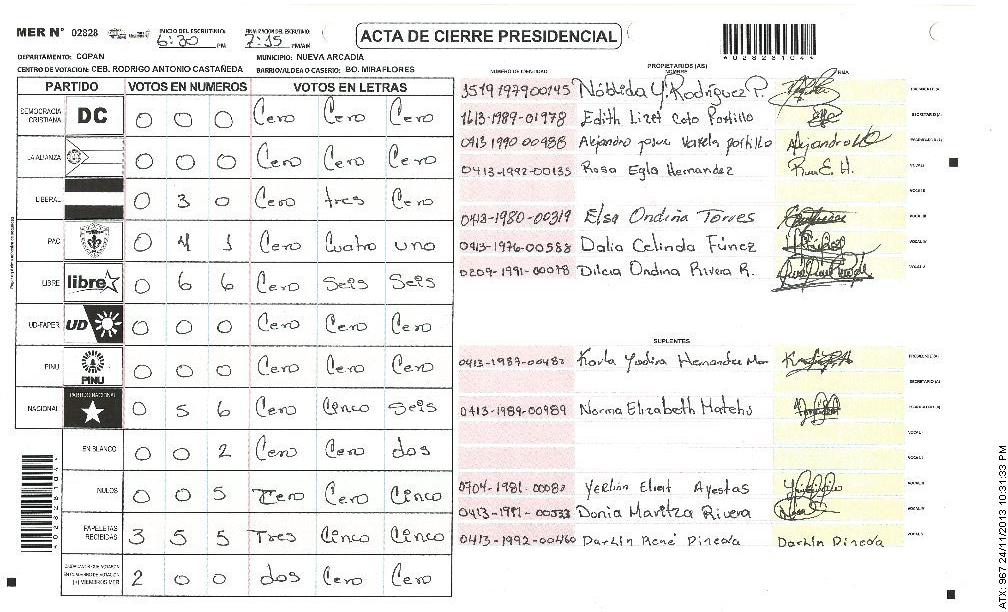 MER N° 02828
INICIO DEL ESCRUTINIO: 6:30 PM
FINALIZACION DEL ESCRUTINIO: 7:15 PM/AM
ACTA DE CIERRE PRESIDENCIAL
*0282810441*
DEPARTAMENTO: COPAN
MUNICIPIO: NUEVA ARCADIA
CENTRO DE VOTACION: CEB. RODRIGO ANTONIO CASTAÑEDA
BARRIO/ALDEA O CASERIO: BO. MIRAFLORES
PARTIDO VOTOS EN NUMEROS VOTOS EN LETRAS
DEMOCRACIA CRISTIANA DC 0 0 0 Cero Cero Cero
LA ALIANZA 0 0 0 Cero Cero Cero
LIBERAL 0 3 0 Cero tres Cero
PAC 0 4 1 Cero Cuatro uno
LIBRE libre 0 6 6 Cero Seis Seis
UD-FAPER UD 0 0 0 Cero Cero Cero
PINU PINU 0 0 0 Cero Cero Cero
NACIONAL PARTIDO NACIONAL 0 5 6 Cero Cinco Seis
EN BLANCO 0 0 2 Cero Cero dos
NULOS 0 0 5 Cero Cero Cinco
PAPELETAS RECIBIDAS 3 5 5 Tres Cinco Cinco
2 0 0 dos Cero Cero
NUMERO DE IDENTIDAD PROPIETARIOS (AS) NOMBRE FIRMA
1519197900145 Rodriguez P. PRESIDENTE (A)
1613-1989-01978 Edith Lizet Coto Portillo SECRETARIO (A)
0413 1990 00988 Alejandro Josue Varela portillo Alejandro ESCRUTADOR (A)
0413-1992-00135 Rosa Egla Hernandez Rosa E. H. VOCAL I
VOCAL II
0413-1980-00319 Elsa Ondina Torres VOCAL III
0413-1976-00588 Dalia Celinda Fúnez VOCAL IV
0209-1991-00078 Dilcia Ondina Rivera R. VOCAL V
SUPLENTES
Karla Yadira Hernandez PRESIDENTE (A)
SECRETARIO (A)
0413-1989-00989 Norma Elizabeth ESCRUTADOR (A)
VOCAL I
VOCAL II
Ayestas VOCAL III
Donia Maritza Rivera VOCAL IV
0413-1992-00460 Darlin René Pineda Darlin Pineda VOCAL V
ATX: 967 24/11/2013 10:31:33 PM